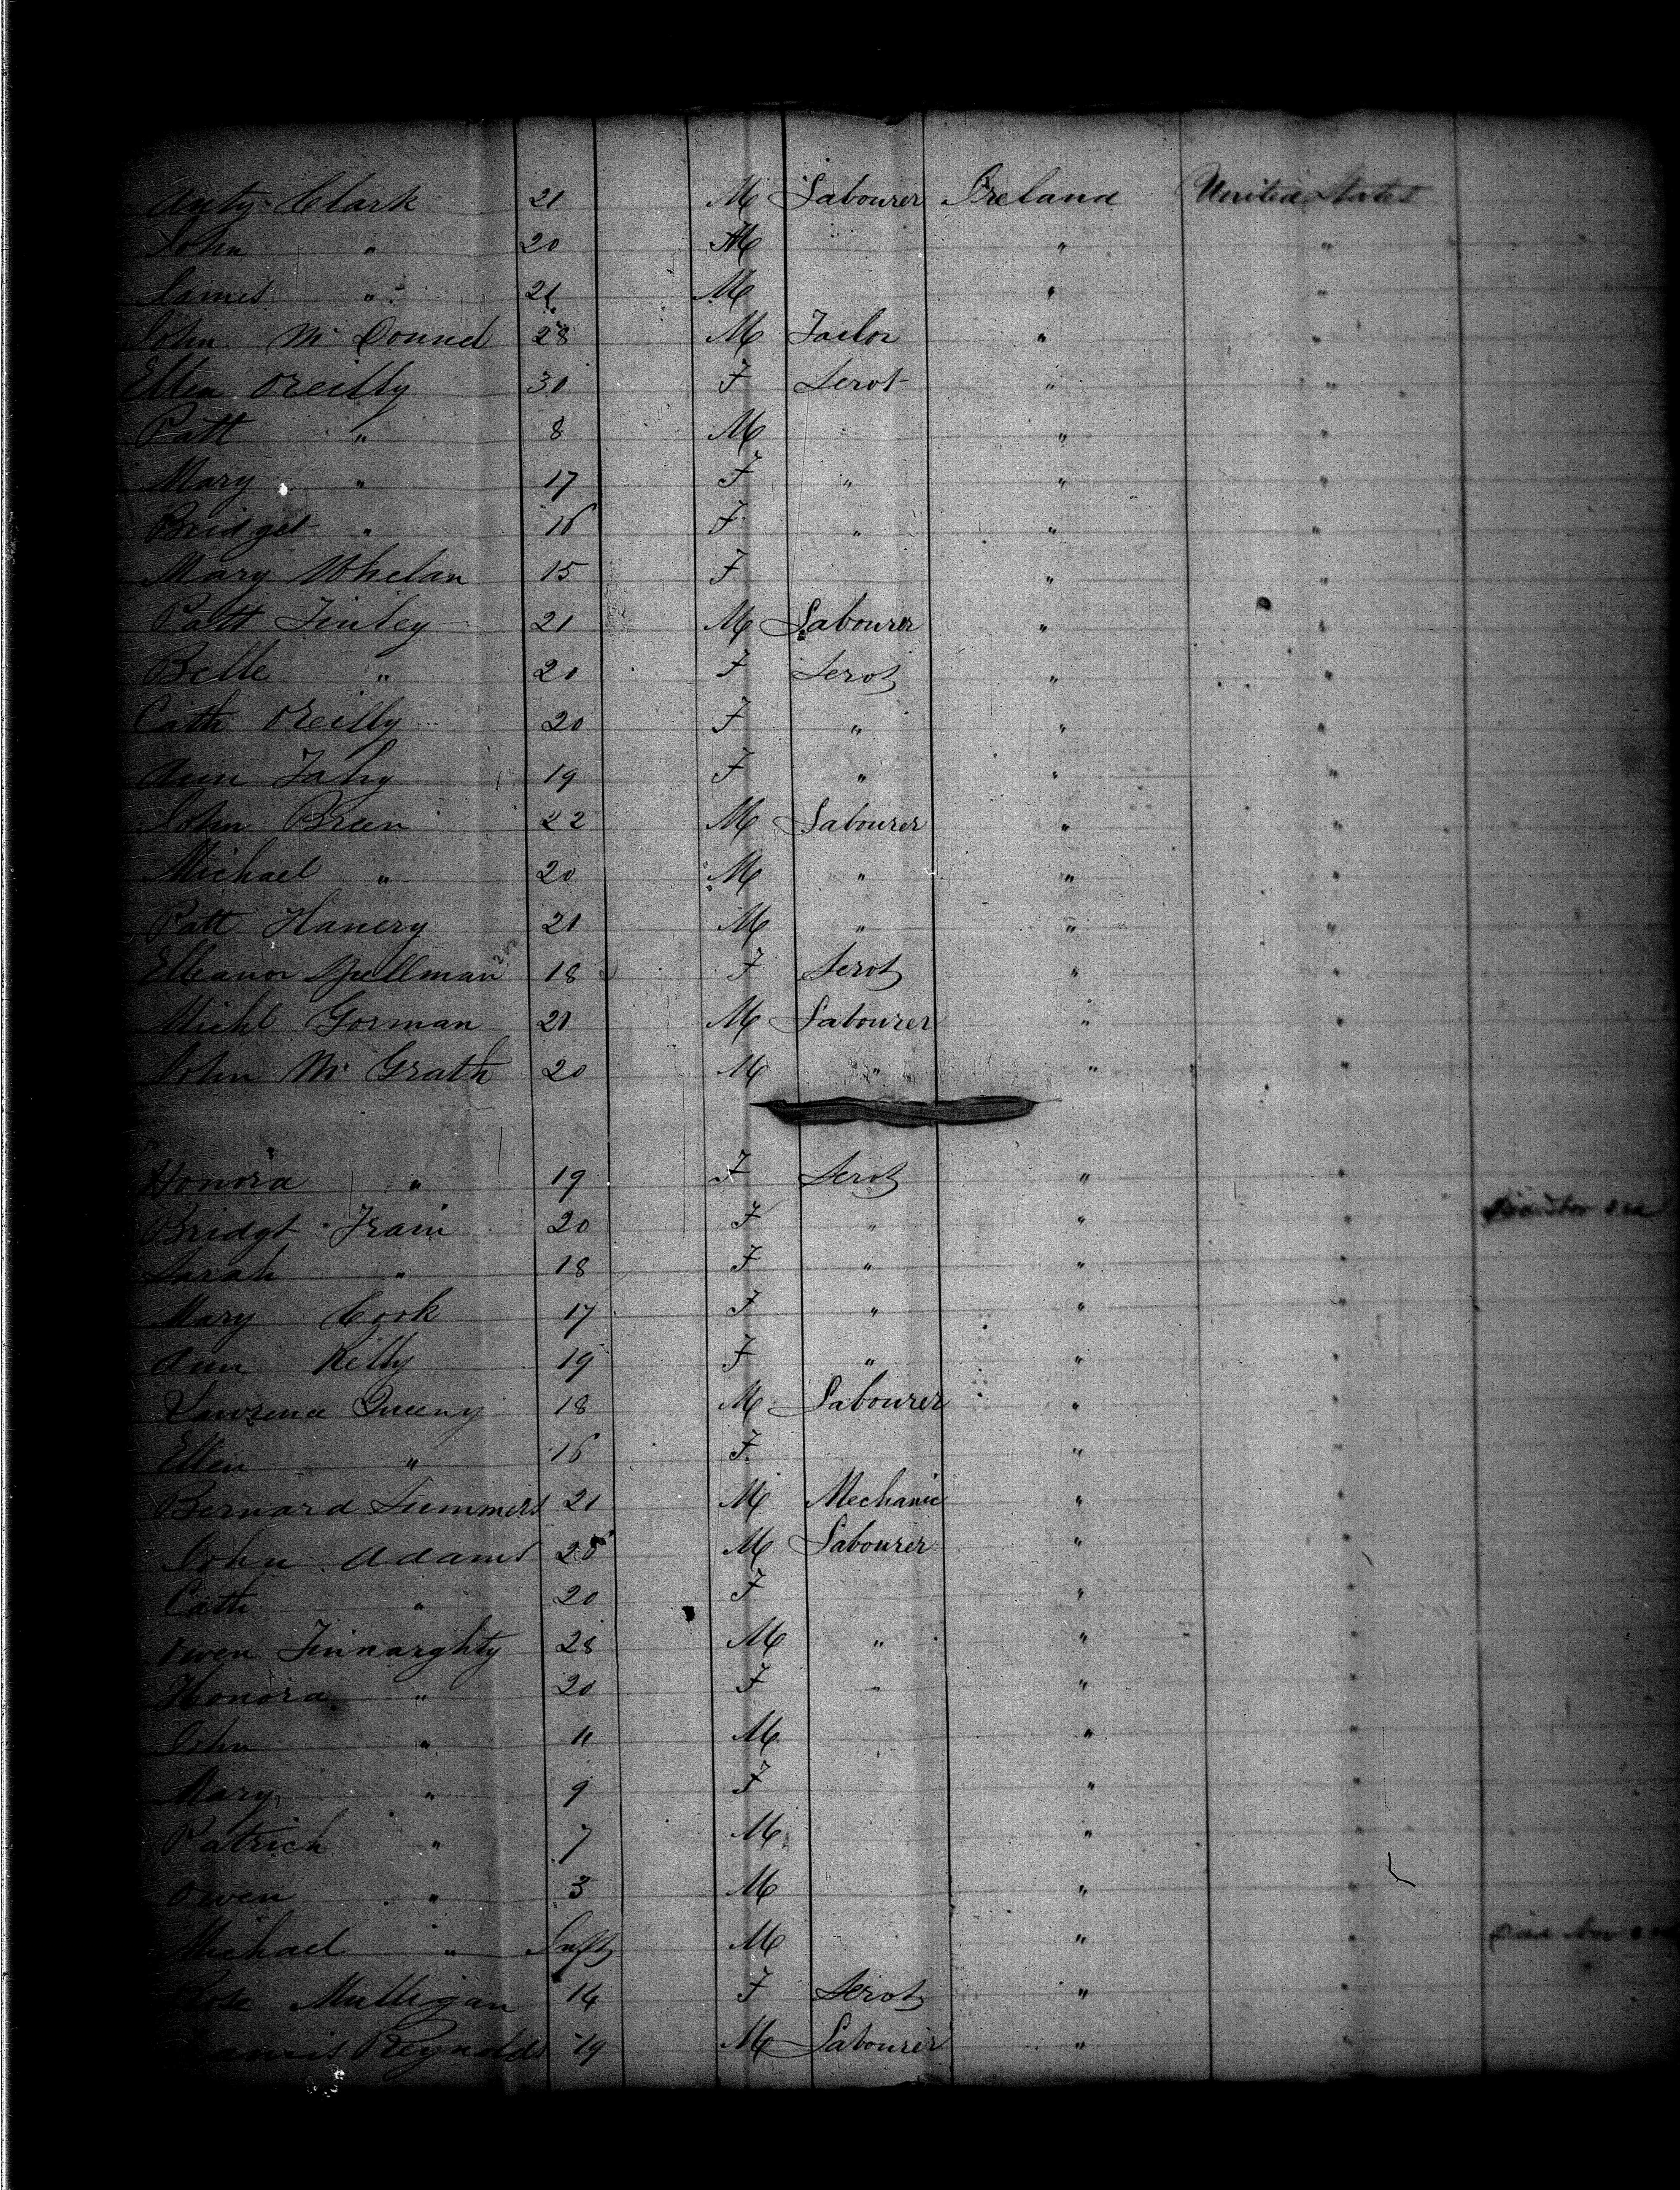 Anty Clark 21 M Labourer Ireland United States
John " 20 M " "
James " 21 M " "
John Mc Donnel 28 M Tailor " "
Ellen OReilly 30 F Servt " "
Patt " 8 M " "
Mary " 17 F " " "
Bridget " 16 F " " "
Mary Whelan 15 F " "
Patt Finley 21 M Labourer " "
Belle " 20 F Servt " "
Cath OReilly 20 F " " "
Ann Fahy 19 F " " "
John Breen 22 M Labourer " "
Michael " 20 M " " "
Patt Hanery 21 M " " "
Elleanor Spellman 18 F Servt " "
Michl Gorman 21 M Labourer " "
John Mc Grath 20 M " " "
Honora " 19 F Servt " "
Bridgt Frain 20 F " " "
Sarah " 18 F " " "
Mary Cook 17 F " " "
Ann Kelly 19 F " " "
Lawrence Queeny 18 M Labourer " "
Ellen " 16 F " "
Bernard Summers 21 M Mechanic " "
John Adams 25 M Labourer " "
Cath " 20 F " "
Owen Finnarghty 28 M " " "
Honora " 20 F " " "
John " 11 M " "
Mary " 9 F " "
Patrick " 7 M " "
Owen " 3 M " "
Michael " Inft M " " Died
Rose Mulligan 14 F Servt " "
Reynolds 19 M Labourer "